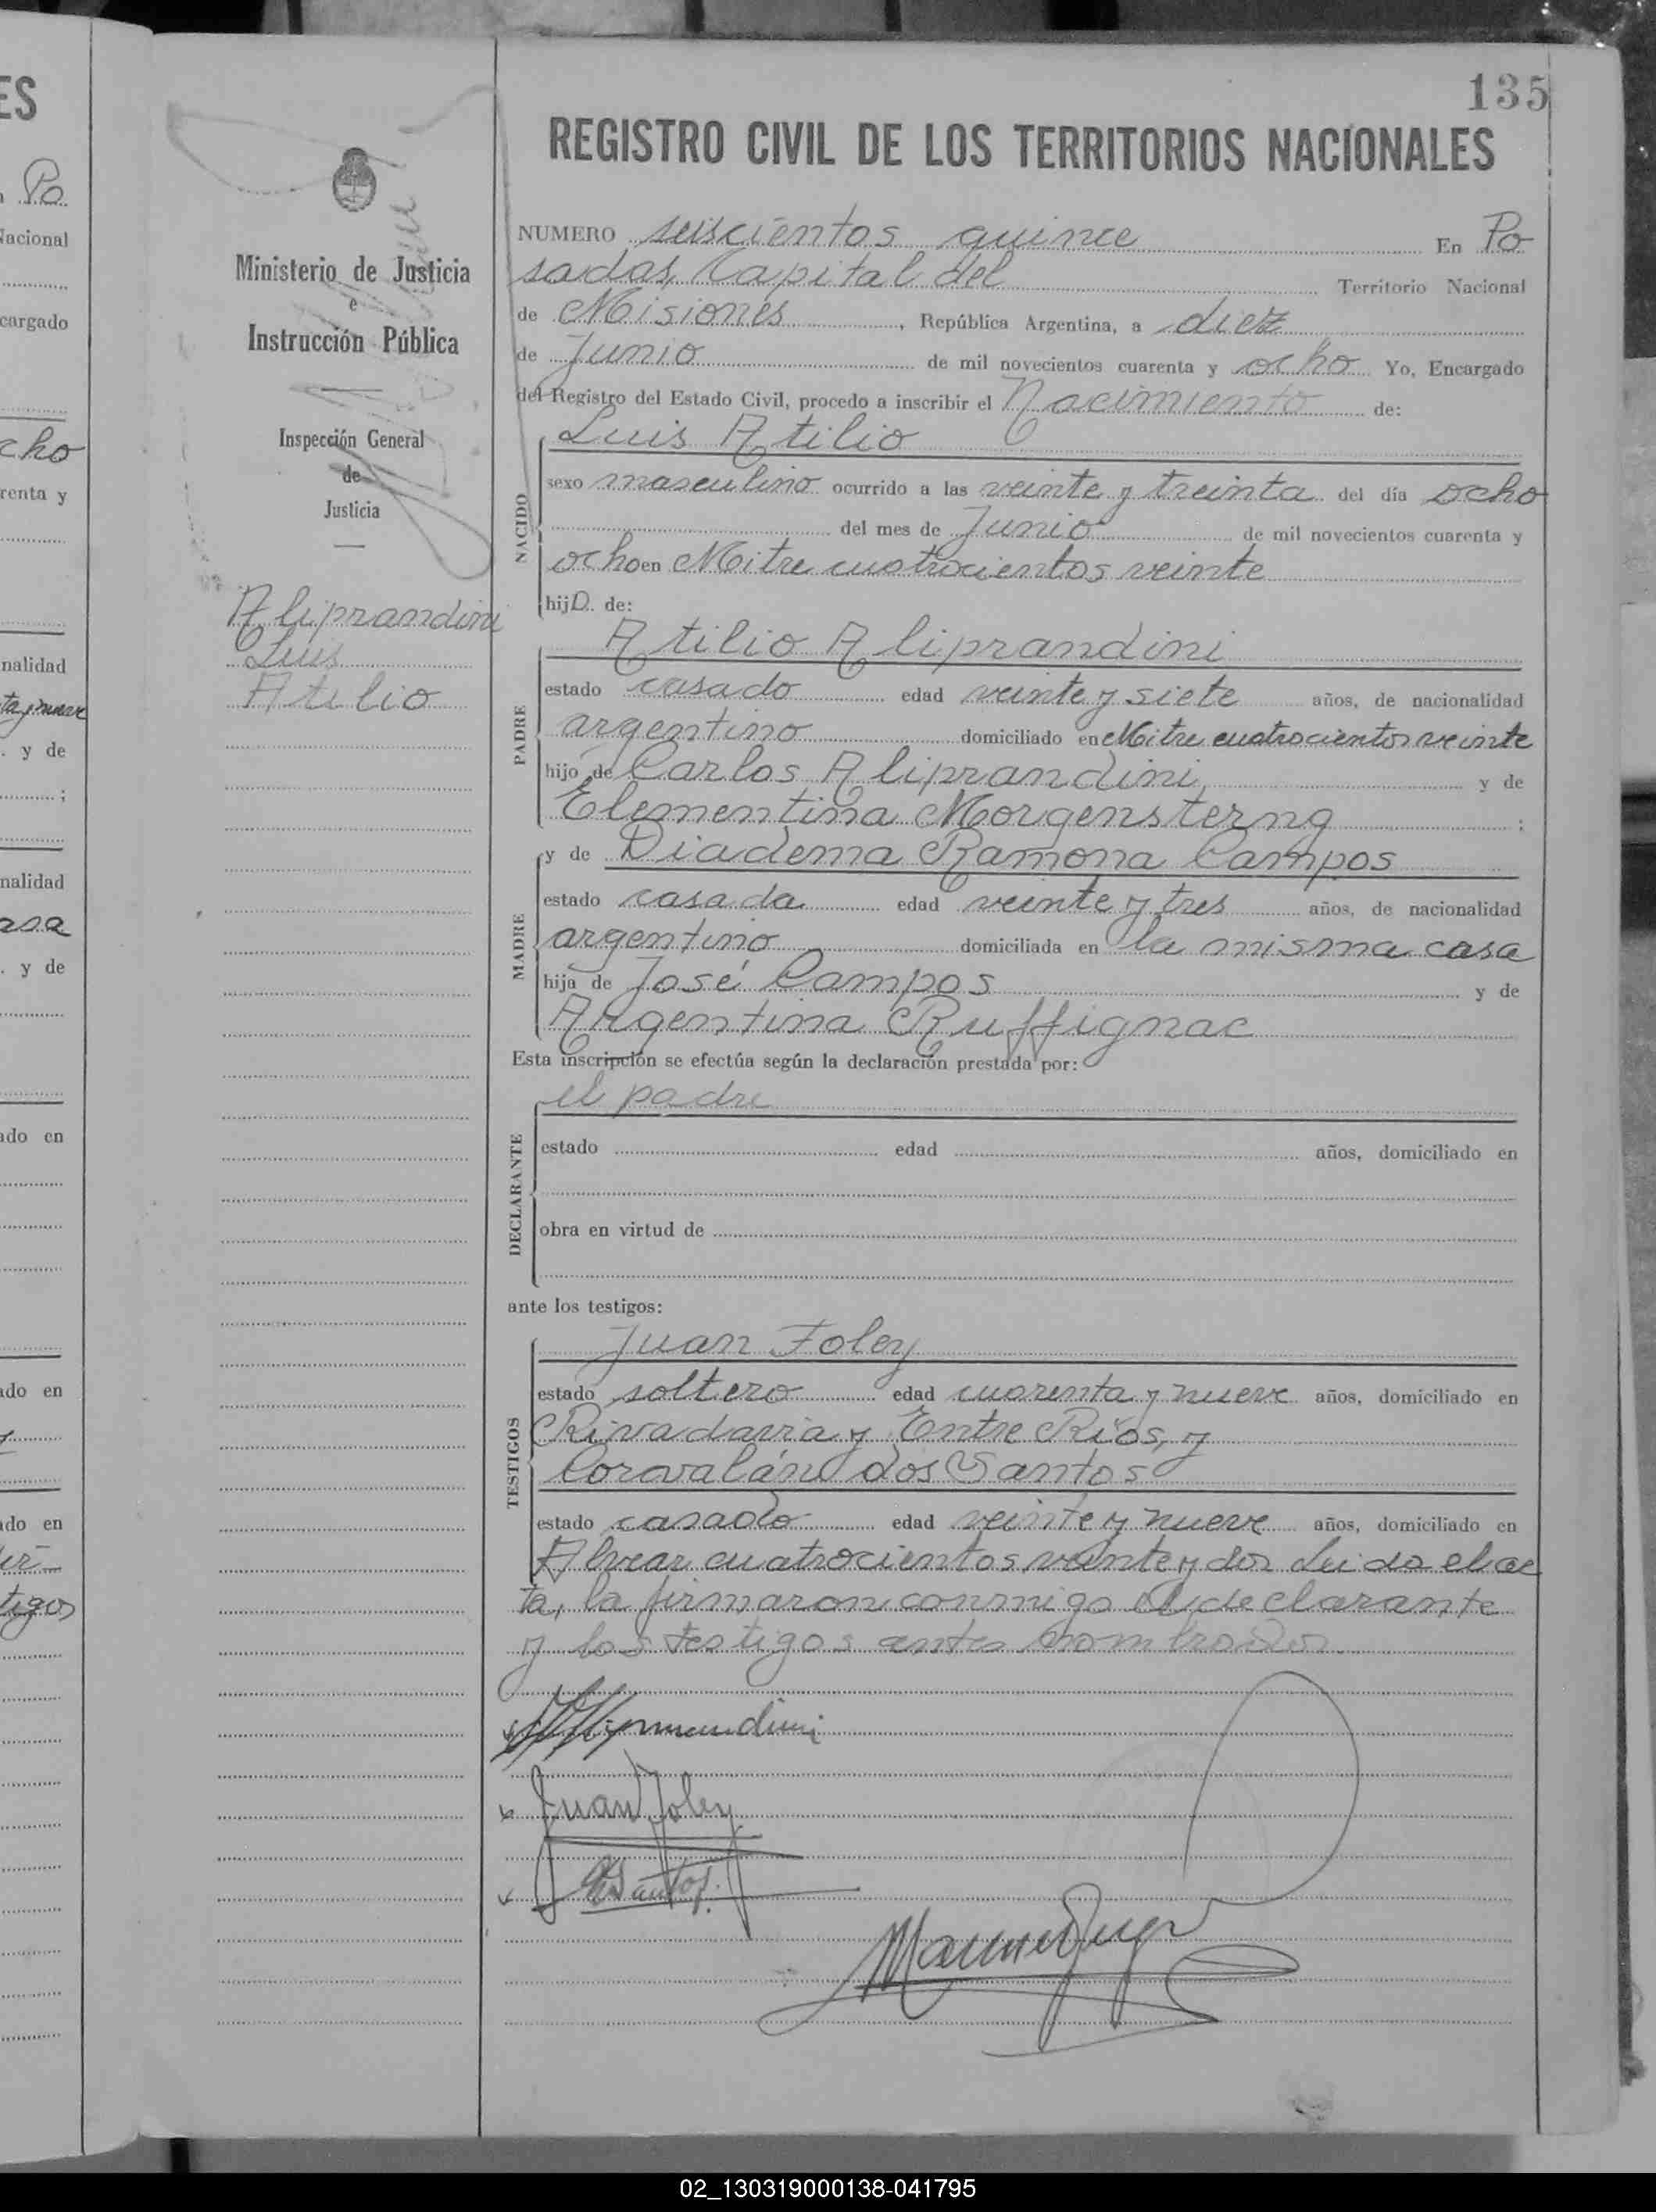 135
REGISTRO CIVIL DE LOS TERRITORIOS NACIONALES
Ministerio de Justicia
e
Instrucción Pública
Inspección General
de
Justicia
Aliprandini
Luis
Atilio
NUMERO seiscientos quince En Po
sadas, Capital del Territorio Nacional
de Misiones, República Argentina, a diez
de Junio de mil novecientos cuarenta y ocho Yo, Encargado
del Registro del Estado Civil, procedo a inscribir el Nacimiento de:
NACIDO
Luis Atilio
sexo masculino ocurrido a las veinte y treinta del día ocho
del mes de Junio de mil novecientos cuarenta y
ocho en Mitre cuatrocientos veinte
hijo de:
PADRE
Atilio Aliprandini
estado casado edad veinte y siete años, de nacionalidad
argentino domiciliado en Mitre cuatrocientos veinte
hijo de Carlos Aliprandini y de
Clementina Morgensterng ;
MADRE
y de Diadema Ramona Campos
estado casada edad veinte y tres años, de nacionalidad
argentino domiciliada en la misma casa
hija de José Campos y de
Argentina Ruffignac
Esta inscripción se efectúa según la declaración prestada por:
DECLARANTE
el padre
estado edad años, domiciliado en
obra en virtud de
ante los testigos:
TESTIGOS
Juan Foley
estado soltero edad cuarenta y nueve años, domiciliado en
Rivadavia y Entre Ríos, y
Corovalán dos Santos
estado casado edad veinte y nueve años, domiciliado en
Alvear cuatrocientos veinte y dos Leída el ac
ta, la firmaron conmigo el declarante
y los testigos antes nombrados
Aliprandini
Juan Foley
CdSantos
02_130319000138-041795